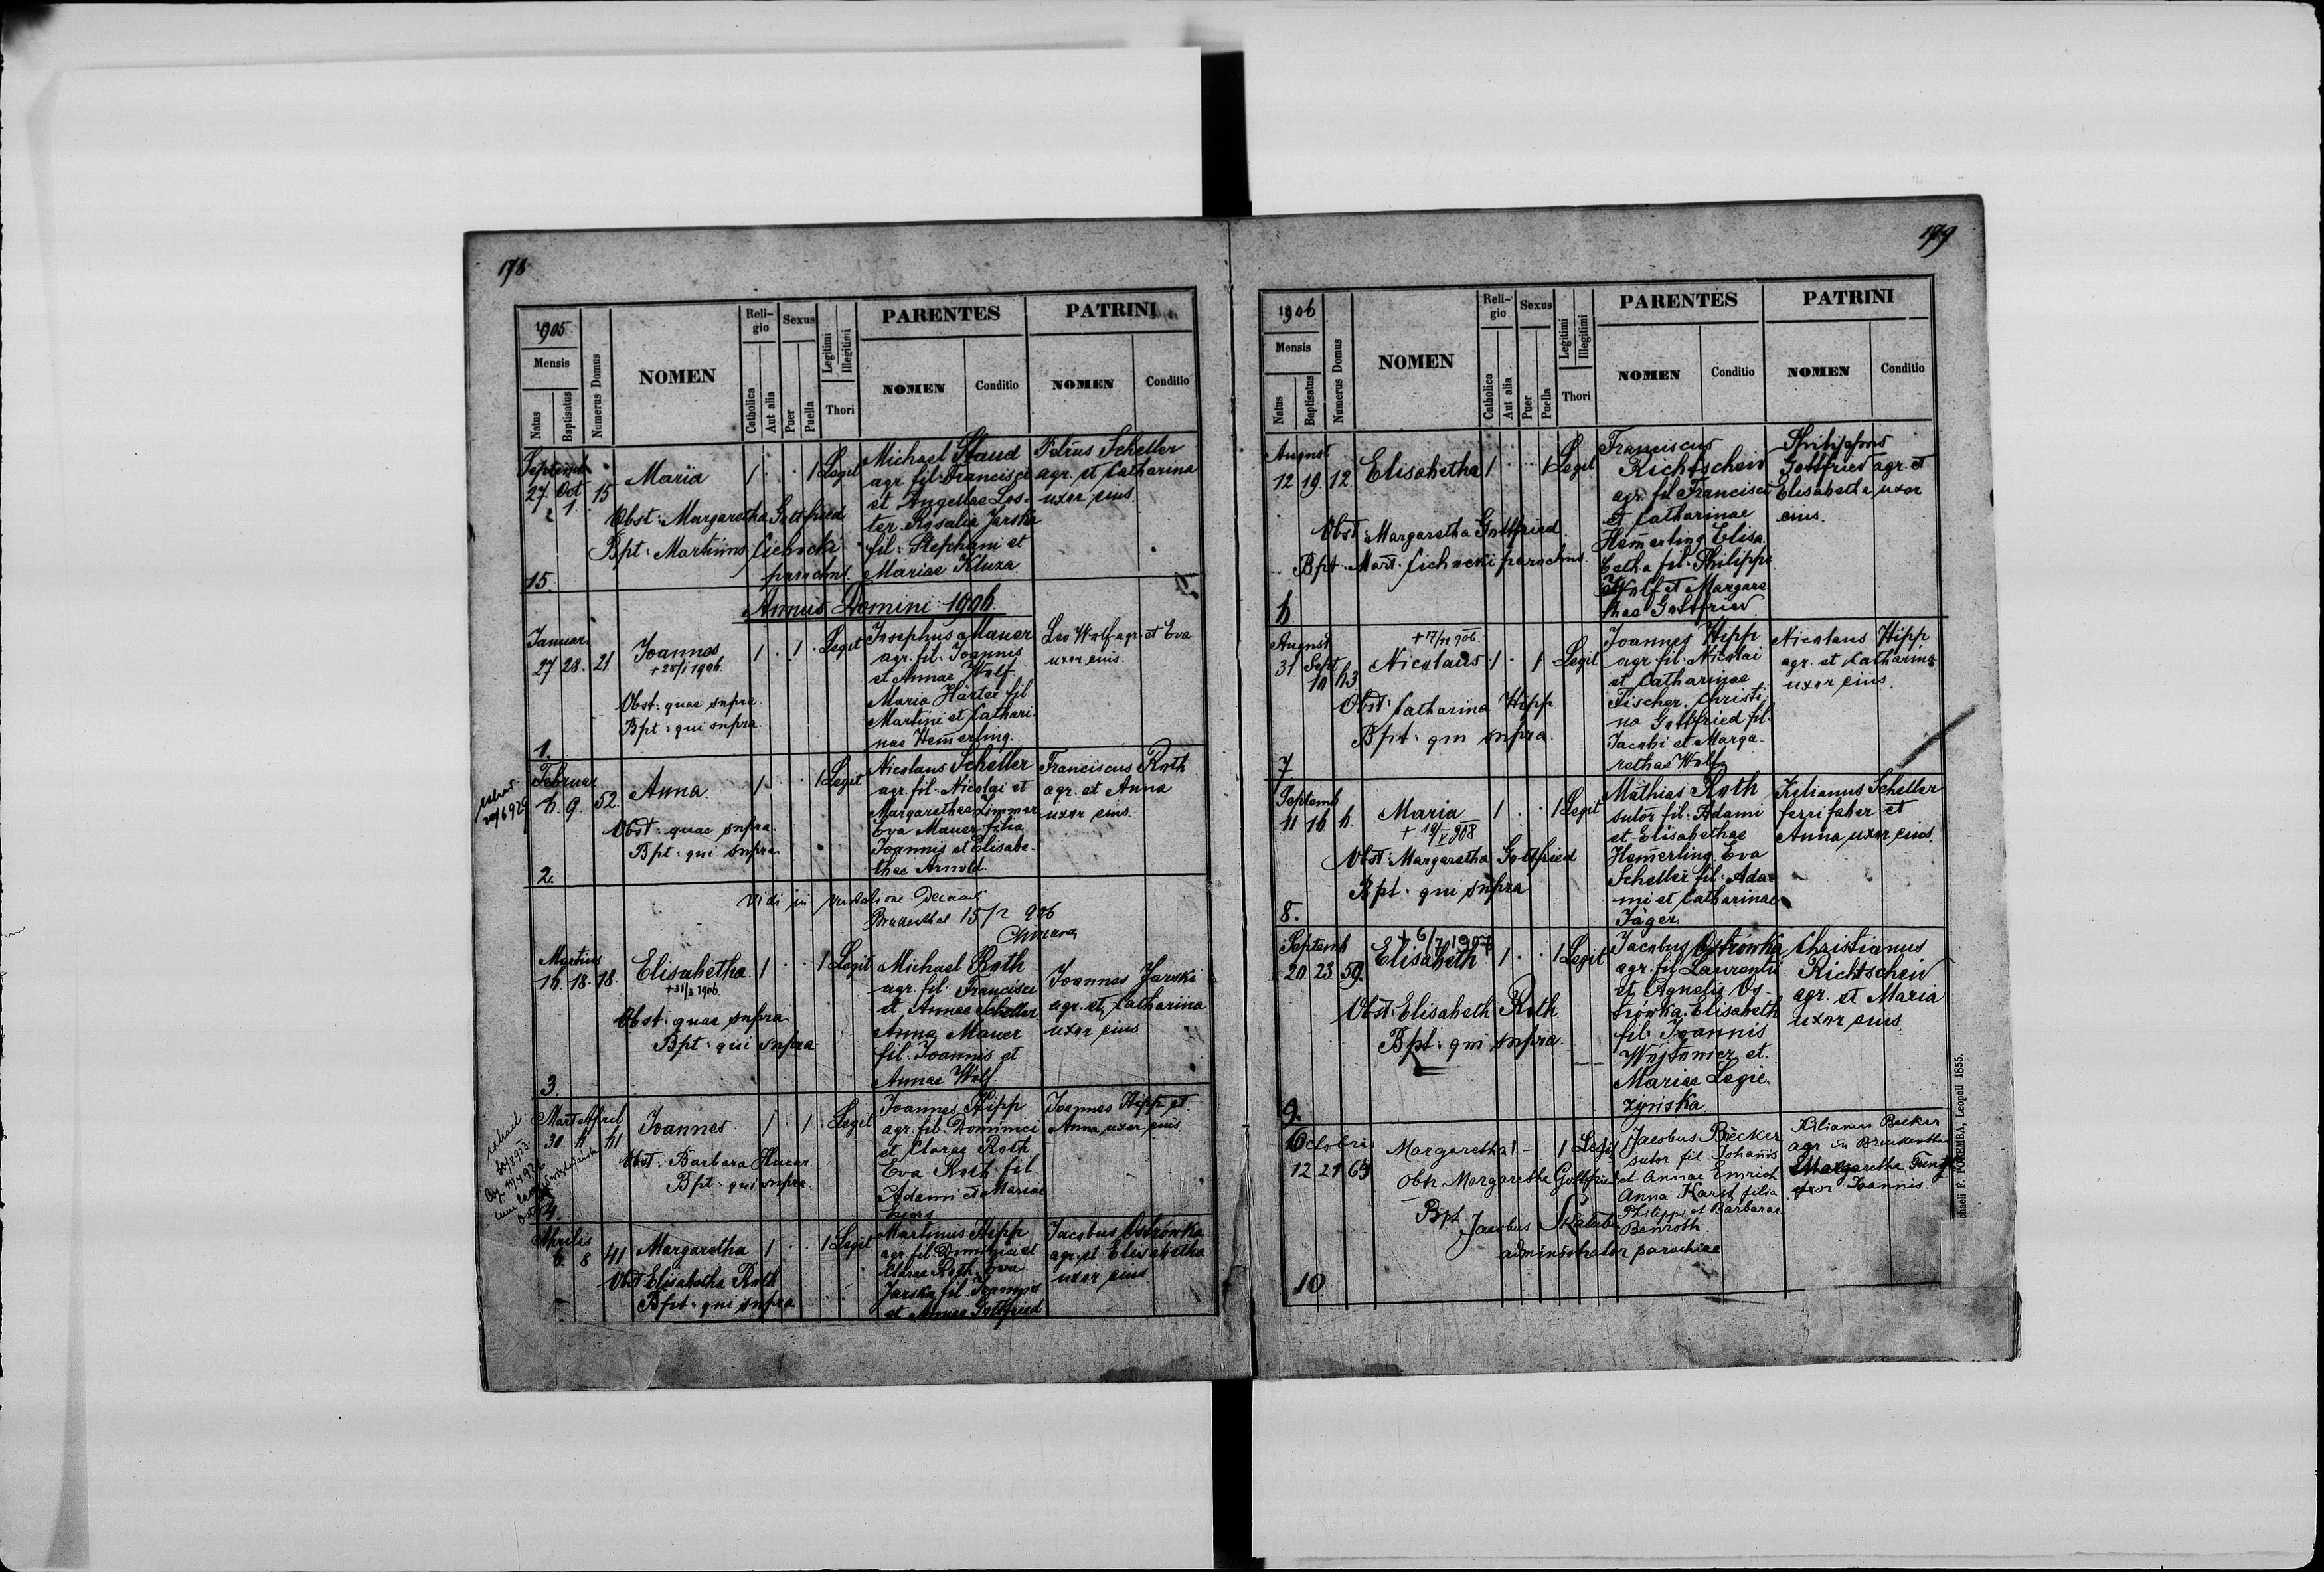 178
1905
Mensis
Natus
Baptisatus
Numerus Domus
NOMEN
Reli-
gio
Catholica
Aut alia
Sexus
Puer
Puella
Legitimi
Illegitimi
Thori
PARENTES
NOMEN
Conditio
PATRINI
NOMEN
Conditio
Septemb
27. Oct 1. 15
Maria 1 · · 1 Legit
Obst: Margaretha Gottfried
Bpt: Martinus Cichocki
parochus.
15.
Michael Staud
agr. fil. Francisci
et Angellae Los-
ter Rosalia Jarska
fil: Stephani et
Mariae Kluza.
Petrus Scheller
agr. et Catharina
uxor eius.
Annus Domini 1906.
Januar.
27 28. 21
Joannes 1 · 1 · Legit
+ 28/1 1906.
Obst: quae supra
Bpt: qui supra.
1.
Josephus Mauer
agr. fil. Joannis
et Annae Wolf
Maria Härter fil
Martini et Cathari-
nae Hemerling.
Leo Wolf agr. et Eva
uxor eius.
Februar
6. 9. 52.
Anna. 1 · · 1 Legit
Obst: quae supra.
Bpt: qui supra
2.
Nicolaus Scheller
agr. fil. Nicolai et
Margarethae Zimmer
Eva Mauer filia
Joannis et Elisabe-
thae Arnold.
Franciscus Roth
agr. et Anna
uxor eius.
Vidi in
Bruckenthal 15/ 906
Martius
16. 18. 18.
Elisabetha 1 · · 1 Legit
+ 31/3 1906.
Obst: quae supra
Bpt: qui supra
3.
Michael Roth
agr. fil. Francisci
et Annae Scheller
Anna Mauer
fil. Joannis et
Annae Wolf.
Joannes Jarski
agr. et Catharina
uxor eius.
Mart April
30.
Joannes 1 · 1 · Legit
Obst: Barbara
Bpt: qui supra.
4.
Joannes Hipp
agr. fil. Dominici
et Clarae Roth
Eva Roth fil
Adami et Mariae
Joannes Hipp et
Anna uxor eius.
Aprilis
6. 8 41
Margaretha 1 · · 1 Legit
Obst: Elisabetha Roth
Bpt: qui supra
Martinus Hipp
agr. fil. Dominici et
Clarae Roth. Eva
Jarska fil. Joannis
et Annae Gottfried
Jacobus Ostrówka
agr. et Elisabetha
uxor eius.
179
1906
Mensis
Natus
Baptisatus
Numerus Domus
NOMEN
Reli-
gio
Catholica
Aut alia
Sexus
Puer
Puella
Legitimi
Illegitimi
Thori
PARENTES
NOMEN
Conditio
PATRINI
NOMEN
Conditio
August
12 19. 12
Elisabetha 1 · · 1 Legit
Obst: Margaretha Gottfried.
Bpt: Mart: Cichocki parochus.
6
Franciscus
Richtscheid
agr. fil Francisci
et Catharinae
Hemerling Elisa-
betha fil. Philippi
Wolf et Margare
thae Gottfried.
Philippus
Gottfried agr. et
Elisabetha uxor
eius.
August
31 Sept
10 63
Nicolaus 1 · 1 Legit
Obst: Catharina Hipp
Bpt: qui supra.
7
Joannes Hipp
agr fil. Nicolai
et Catharinae
Fischer. Christi-
na Gottfried fil.
Jacobi et Marga-
rethae Wolf
Nicolaus Hipp
agr. et Catharina
uxor eius.
Septemb
11 16. 6.
Maria 1 · · 1 Legit
+ 19/V 908
Obst: Margaretha Gottfried
Bpt: qui supra
8.
Mathias Roth
sutor fil. Adami
et Elisabethae
Hemerling. Eva
Scheller fil. Ada-
mi et Catharinae
Jäger.
Kilianus Scheller
ferri faber et
Anna uxor eius.
Septemb
20. 23. 59.
+ 6/7 1907
Elisabeth. 1 · · 1 Legit
Obst: Elisabeth Roth.
Bpt: qui supra.
9.
Jacobus Ostrówka
agr. fil Laurentii
et Agnetis Os-
trówka. Elisabeth
fil. Joannis
Wójtowicz et.
Mariae Legie-
żyńska.
Christianus
Richtscheid
agr. et Maria
uxor eius.
Octobris
12 21 69
Margaretha 1 – 1 Legit
Obst Margaretha Gottfried
Bpt
Jacobus Skałuba
administrator parochiae
10
Jacobus Becker
sutor fil Johanis
et Annae Emrich
Anna Karst filia
Philippi et Barbarae
Benroth.
Kilianus Becker
agr in Bruckenthal
Margaretha
uxor Joannis.
chaeli F. POREMBA, Leopoli 1855.